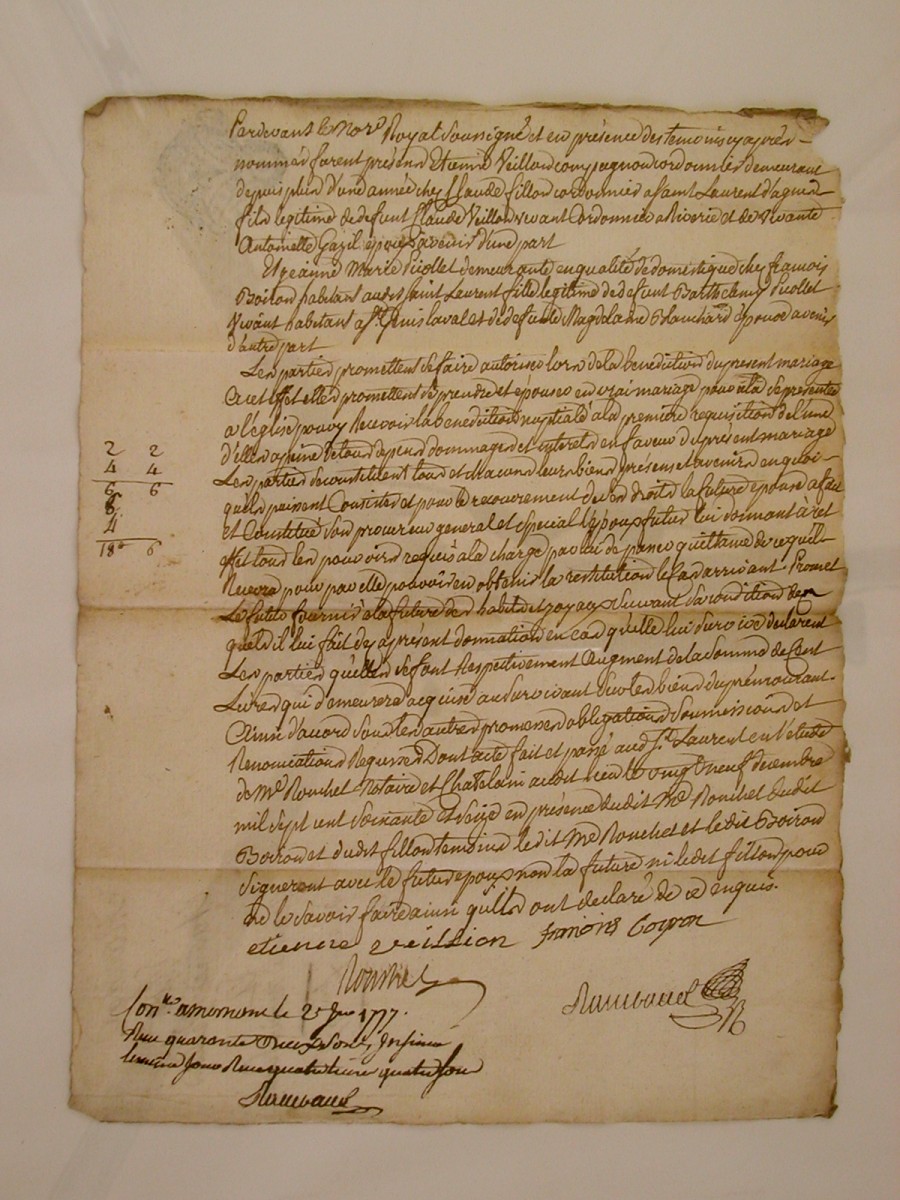 Pardevant le Nore Royal soussigné et en présence des temoins cy après
nommés furent présens Etienne Veillon compagnon cordonnier demeurant
depuis plus d'une année chez Claude fillon cordonnier a Saint Laurent d'agni
fils legitime de defunt Claude Veillon vivant Cordonnier a Riverie et de vivante
Antoinette Gazil epoux avenir d'une part
Et jeanne Marie Picollet demeurante en qualité de domestique chez francois
Boiron habitant audit saint Laurent fille legitime de defunt Barthelemy Picollet
Vivant habitant a St Genis laval et de defunte Magdelaine Blanchard épouse avenir
d'autre part
Les parties promettent se faire autoriser lors de la benediction du present mariage
a cet effet elles promettent se prendre et épouser en vrai mariage pour a la
a l'église pour y Recevoir la benediction nuptiale a la première requisition de l'une
d'elles a peine de tous depens dommages et interets en faveur du présent mariage
Les parties se constituent tous et chacuns leurs biens présens et avenirs en quoi
qu'ils puissent Consister et pour le recouvrement de ses droits la future épouse a fait
et Constitué son procureur general et special l'époux futur lui donnant à cet
effet tous les pouvoirs requis a la charge par lui de passer quittance de ce qu'il
Recevra pour par elle pouvoir en obtenir la restitution le cas arrivant. Promet
Le futur fournir a la future des habits et joyaux suivant sa condition
quels il lui fait des a présent donnation en cas qu'elle lui survive declarent
Les parties qu'elles se font Respectivement Augment de la somme de Cent
Livres qui demeurera acquise au survivant sur les biens du prémourant.
Ainsi d'acord sous les autres promesses obligations soumissions et
Renonciations Requises Dont acte fait et passé aud. St Laurent en l'étude
de Me Nouchet Notaire et Chatelain audit lieu le vingt neuf decembre
mil sept cent soixante et seize en présence dudit Me Nouchet dudit
Boiron et dudit fillon temoins le dit Me Nouchet et ledit Boiron
signerent avec le futur epoux non la future ni ledit fillon pour
ne le savoir faire ainsi qu'ils ont declaré de ce enquis.
etienne veillion francois
2 2
4 4
6 6
6
4
18 6
Conlé a mornant le 2 Jer 1777.
Recu quarante sols, Insinué
le meme jour Recu quatre livre quatre sous